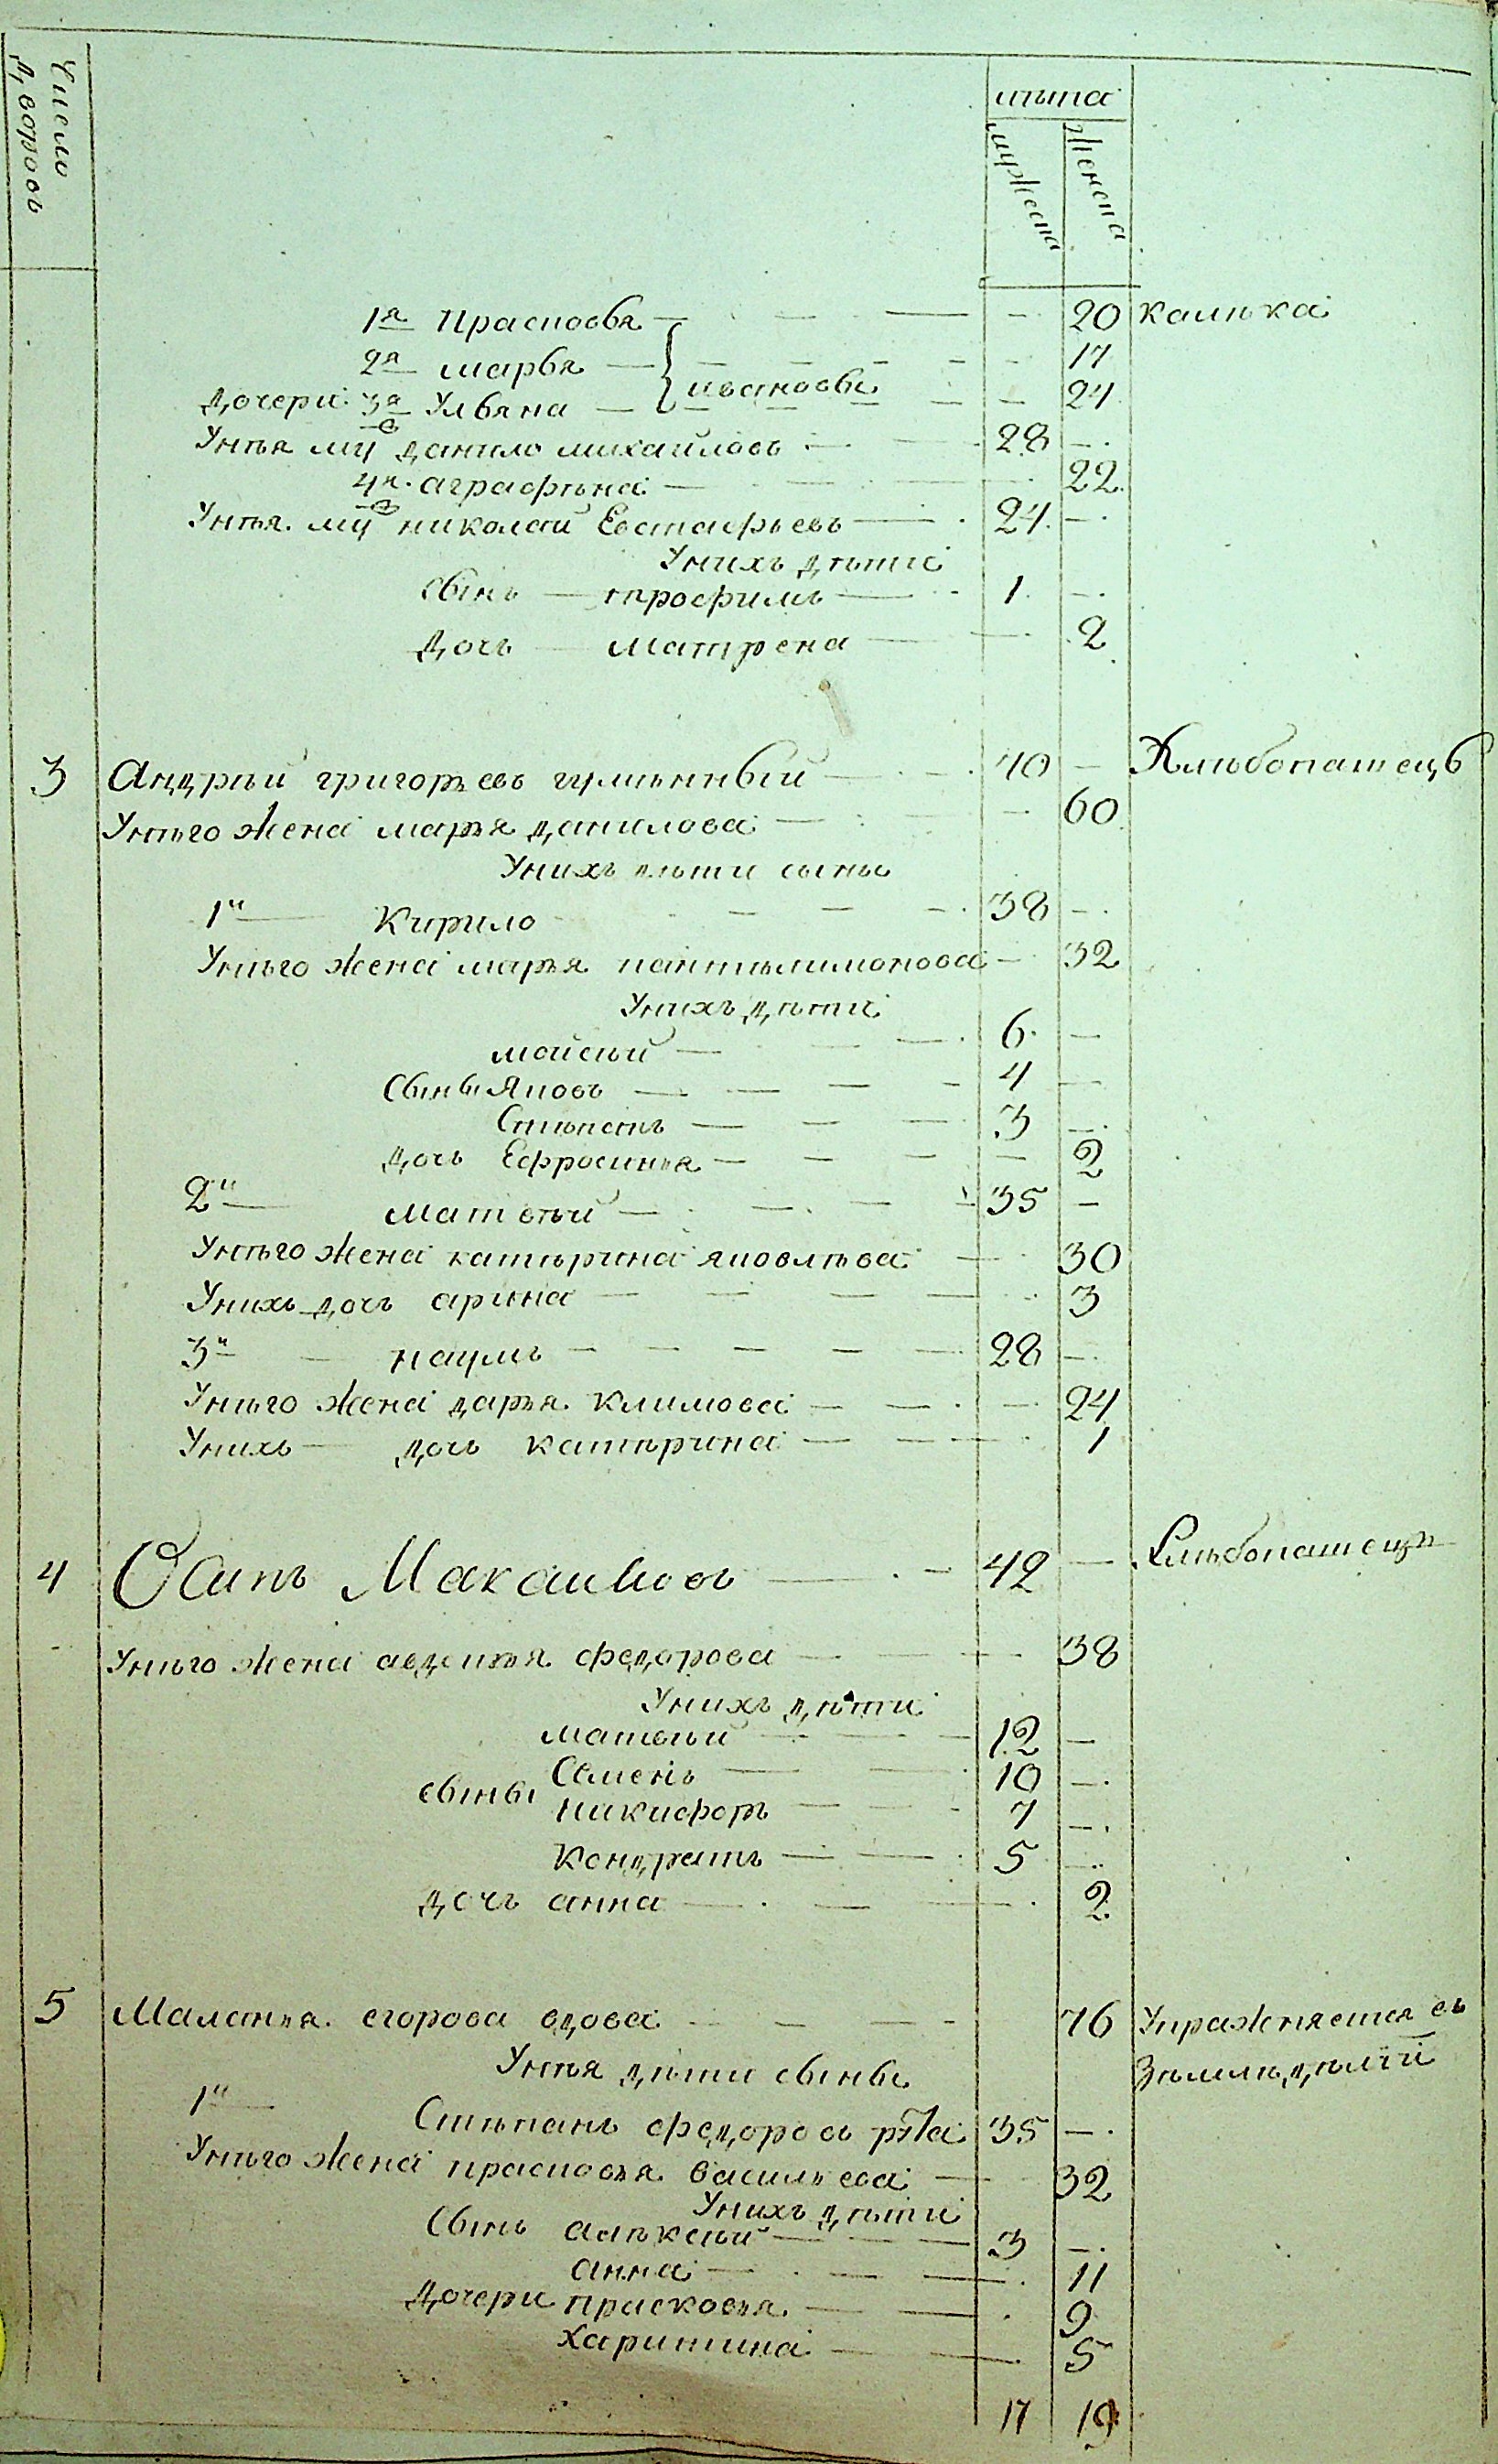 Число дворовъ
лѣта
мужеска
женска
1я Прасковья — 20 калѣка
2я марья — 17
дочери 3я Ульяна — ивановы — 24
Унѣя му данило михайловъ — 28 —
4я аграфѣна — 22
Унѣя му николай Евстафьевъ — 24 —
Унихъ дѣти
Сынъ — трофимъ — 1 —
дочь — матрена — 2
3 Андрѣй григорьевъ — 70 — Хлѣбопашецъ
Унѣго жена марья данилова — 60
Унихъ дѣти сыны
1й Кирило — 38 —
Унѣго жена марья пантѣлимонова — 32
Унихъ дѣти
майсѣй — 6 —
Сыны Яковъ — 4 —
Стѣпанъ — 3 —
дочь Ефросинья — 2
2й матвѣй — 35 —
Унѣго жена катѣрина яковлѣва — 30
Унихъ дочь арина — 3
3й — наумъ — 28 —
Унѣго жена дарья Климова — 24
Унихъ — дочь катѣрина — 1
4 Осипъ Максимовъ — 42 — Хлѣбопашецъ
Унѣго жена авдотья федорова — 38
Унихъ дѣти
матвѣй — 12 —
Семенъ — 10 —
сыны никифоръ — 7 —
Кондратъ — 5 —
дочь анна — 2
5 Маланья егорова вдова — 76 Упражняется въ
Унѣя дѣти сыны Зѣмлѣдѣлии
1й Стѣпанъ федоровъ 35 —
Унѣго жена прасковья Васильева — 32
Унихъ дѣти
Сынъ алѣксѣй — 3 —
анна — 11
Дочери прасковья — 9
Харитина — 5
17 19